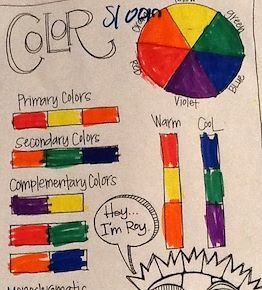 COLOR
Sloan
Yellow
green
Blue
Violet
Red
Primary Colors
Secondary Colors
Complementary Colors
Warm
Cool
Hey...
I'm Roy.
Monochromatic